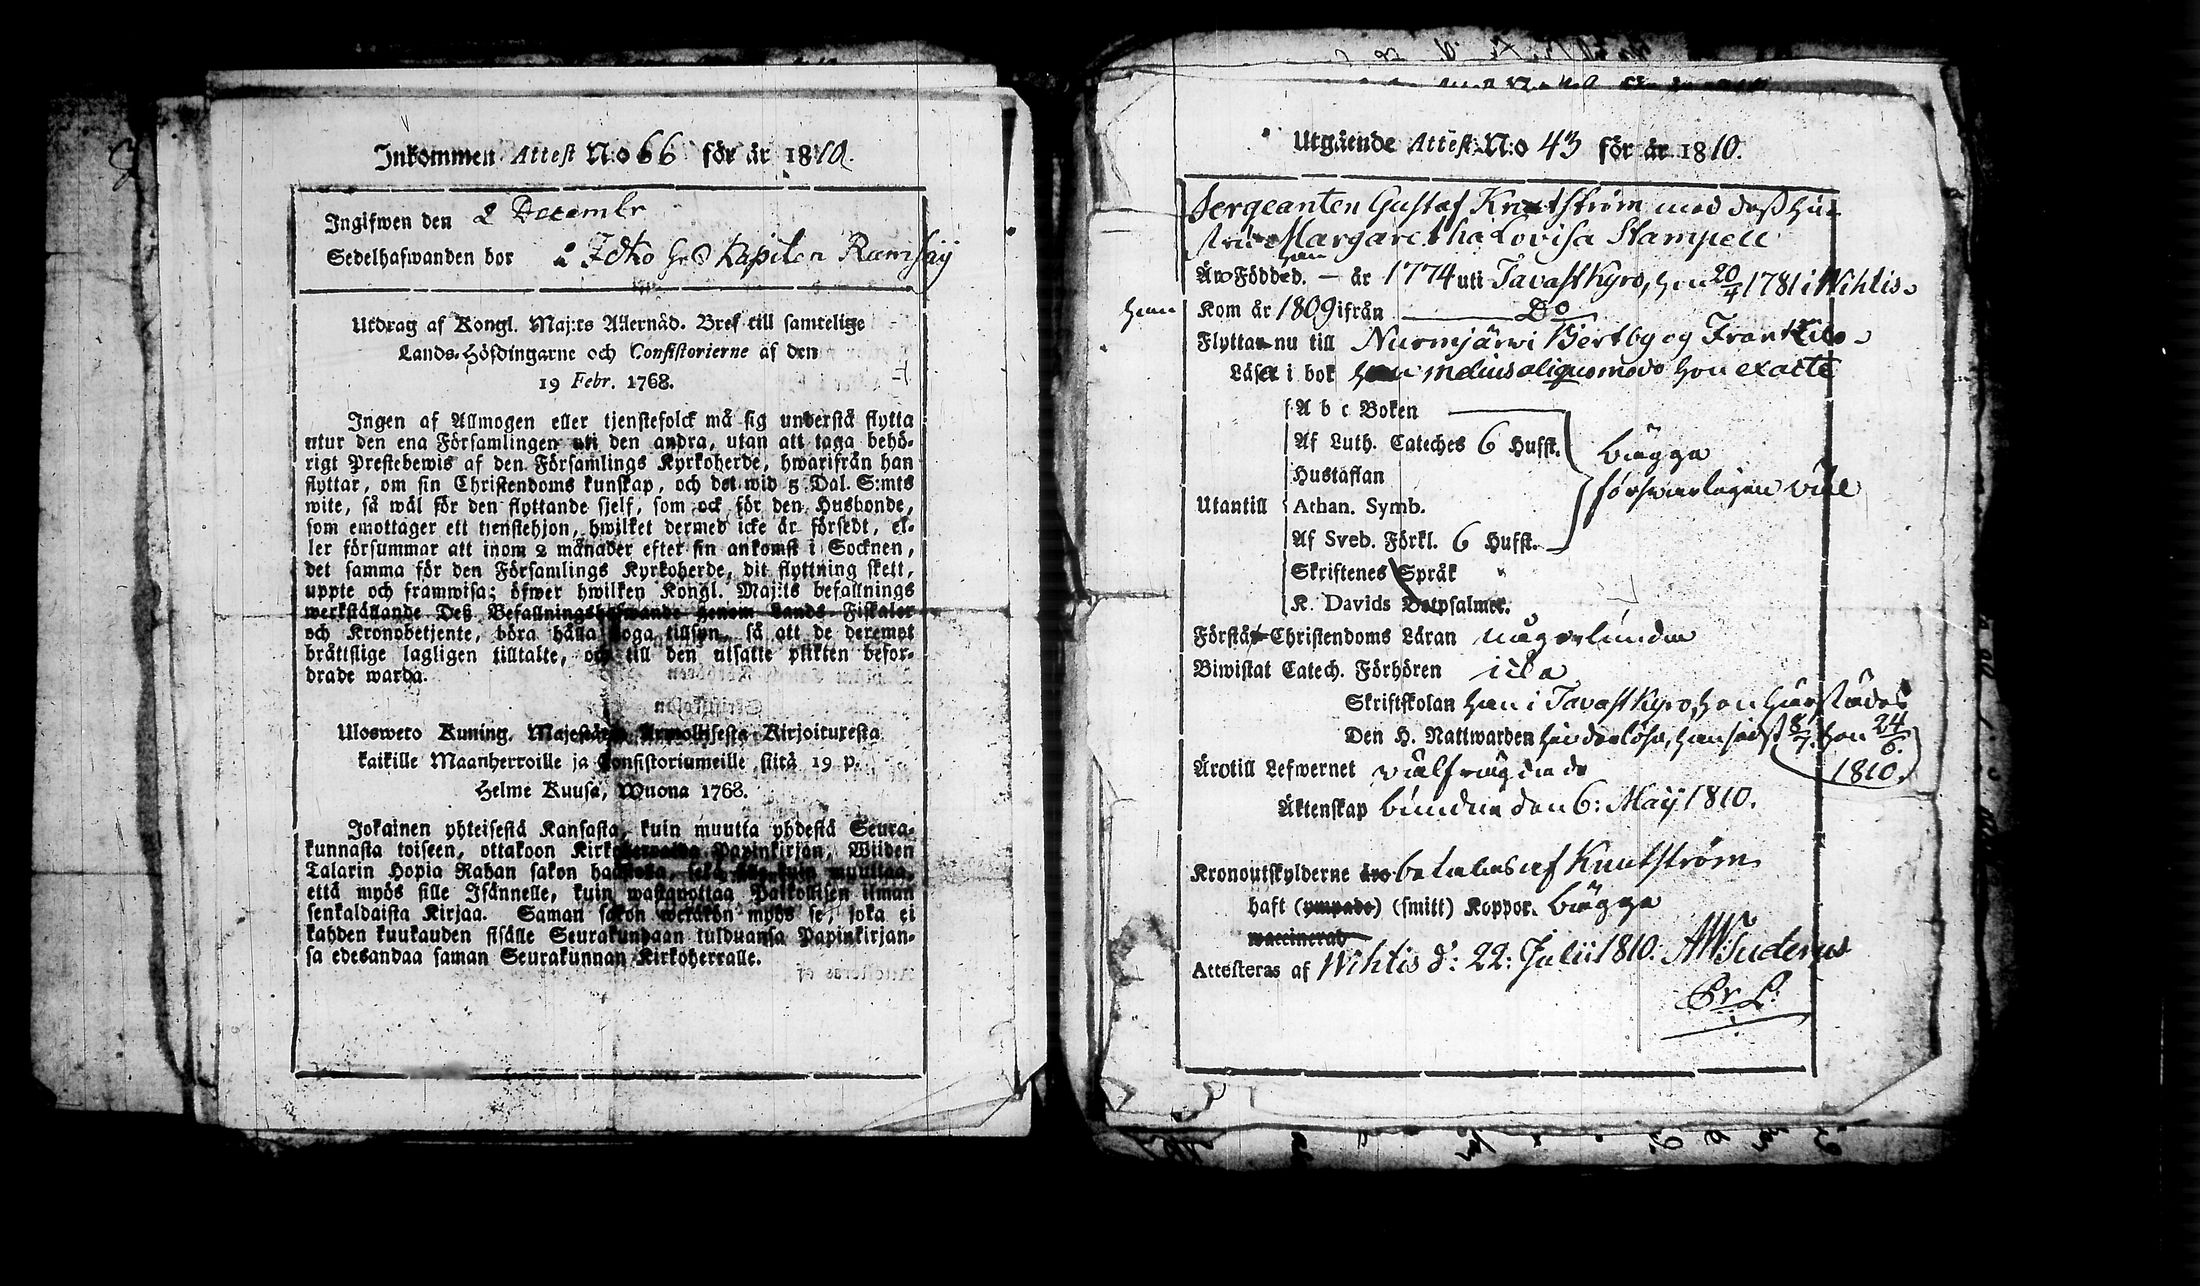 Inkommen Attest N:o 66 för år 1810.
Ingifwen den 2 Decembr
Sedelhafwanden bor Kapiten Ramsay
Utdrag af Kongl. Maj:ts Allernåd. Bref till samtelige
Lands-Höfdingarne och Consistorierne af den
19 Febr. 1768.
Ingen af Allmogen eller tjenstefolck må sig understå flytta
utur den ena Församlingen uti den andra, utan att taga behö-
rigt Prestebewis af den Församlings Kyrkoherde, hwarifrån han
flyttar, om sin Christendoms kunskap, och det wid 5 Dal. S:mts
wite, så wäl för den flyttande sjelf, som ock för den Husbonde,
som emottager ett tienstehjon, hwilket dermed icke är försedt, el-
ler försummar att inom 2 månader efter sin ankomst i Socknen,
det samma för den Församlings Kyrkoherde, dit flyttning skett,
uppte och framwisa; öfwer hwilken Kongl. Maj:ts befallnings
werkställande Deß Befallningshafwande genom Lands Fiskaler
och Kronobetjente, böra hålla noga tillsyn, så att de deremot
bråttslige lagligen tilltalte, och till den utsatte plikten befor-
drade warda.
Ulosweto Kuning. Majestätin Armollisesta Kirjoituxesta
kaikille Maanherroille ja Consistoriumeille siitä 19 p.
Helme Kuusa, Wuona 1768.
Jokainen yhteisestä Kansasta, kuin muutta yhdestä Seura-
kunnasta toiseen, ottakoon Kirkoherralda Papinkirjan, Wiiden
Talarin Hopia Rahan sakon haastolla, sekä sille kuin muuttaa,
että myös sille Isännelle, kuin wastaanottaa Palkollisen ilman
senkaldaista Kirjaa. Saman sakon wetäkön myös se, joka ei
kahden kuukauden sisälle Seurakundaan tulduansa Papinkirjan-
sa edesandaa saman Seurakunnan Kirkoherralle.
Utgående Attest N:o 43 för år 1810.
Sergeanten Gustaf Knutström med deß Hu-
stru Margaretha Lovisa Stampell
Äro Född ed. — år han 1774 uti Tavastkyro, hon 20/4 1781 i Wihtis.
han Kom år 1809 ifrån Do
Flytta nu till Nurmjärwi Bertby og Frantsila
Läser i bok han melius aliquo modo hon exacte
A b c Boken
Af Luth. Cateches 6 Hufst. bägge
Hustaflan försvarligen väl
Utantill Athan. Symb.
Af Sveb. Förkl. 6 Hufst.
Skriftenes Språk
K. Davids Botpsalmer.
Förstå Christendoms Läran någorlunda
Biwistat Catech. Förhören
Skriftskolan han i Tavastkyro, hon härstädes
Den H. Nattwarden han sidst 8/7. hon 24/6. 1810.
Äro till Lefwernet välfrägdade
Äktenskap bundne den 6: Maij 1810.
Kronoutskylderne äro betalas af Knutström
haft (ympade) (smitt) Koppor. bägge
waccinerad
Attesteras af Wihtis d: 22: Julii 1810. AW: Sudenius